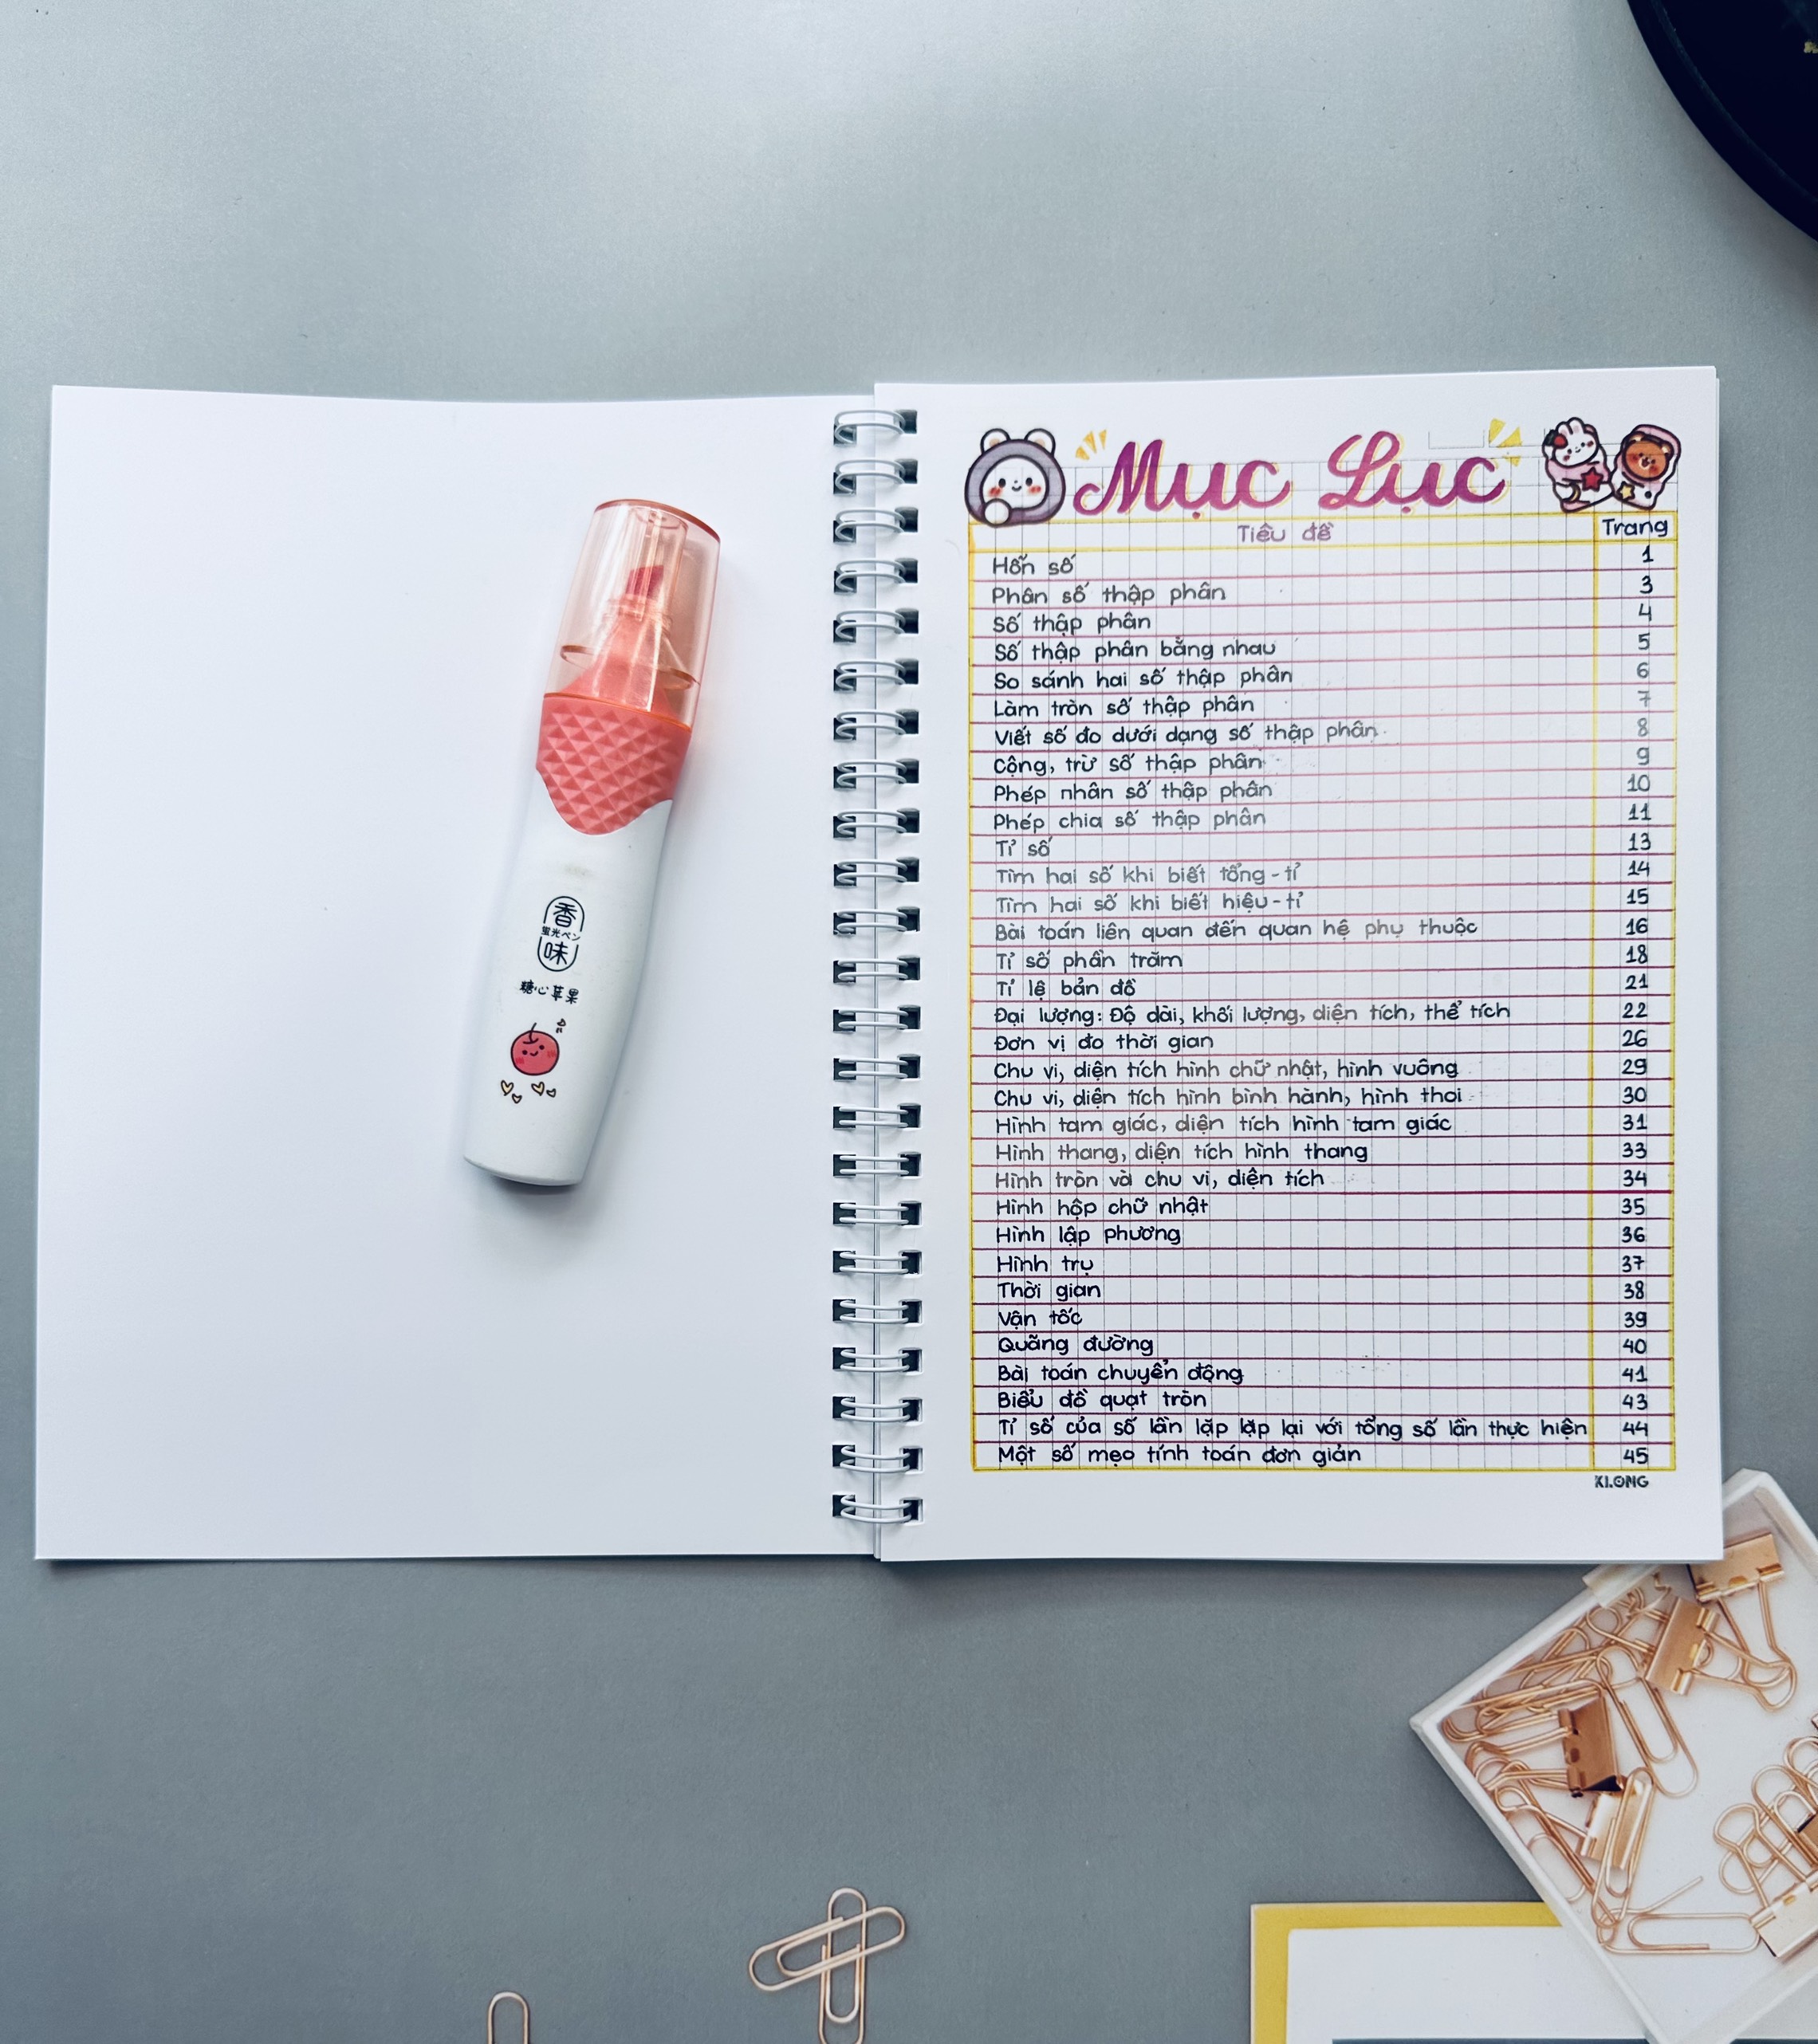 香
蛍光ペン
味
糖心苹果
Mục Lục
Tiêu đề Trang
Hỗn số 1
Phân số thập phân 3
Số thập phân 4
Số thập phân bằng nhau 5
So sánh hai số thập phân 6
Làm tròn số thập phân 7
Viết số đo dưới dạng số thập phân 8
Cộng, trừ số thập phân 9
Phép nhân số thập phân 10
Phép chia số thập phân 11
Tỉ số 13
Tìm hai số khi biết tổng - tỉ 14
Tìm hai số khi biết hiệu - tỉ 15
Bài toán liên quan đến quan hệ phụ thuộc 16
Tỉ số phần trăm 18
Tỉ lệ bản đồ 21
Đại lượng: Độ dài, khối lượng, diện tích, thể tích 22
Đơn vị đo thời gian 26
Chu vi, diện tích hình chữ nhật, hình vuông 29
Chu vi, diện tích hình bình hành, hình thoi 30
Hình tam giác, diện tích hình tam giác 31
Hình thang, diện tích hình thang 33
Hình tròn và chu vi, diện tích 34
Hình hộp chữ nhật 35
Hình lập phương 36
Hình trụ 37
Thời gian 38
Vận tốc 39
Quãng đường 40
Bài toán chuyển động 41
Biểu đồ quạt tròn 43
Tỉ số của số lần lặp lặp lại với tổng số lần thực hiện 44
Một số mẹo tính toán đơn giản 45
KLONG